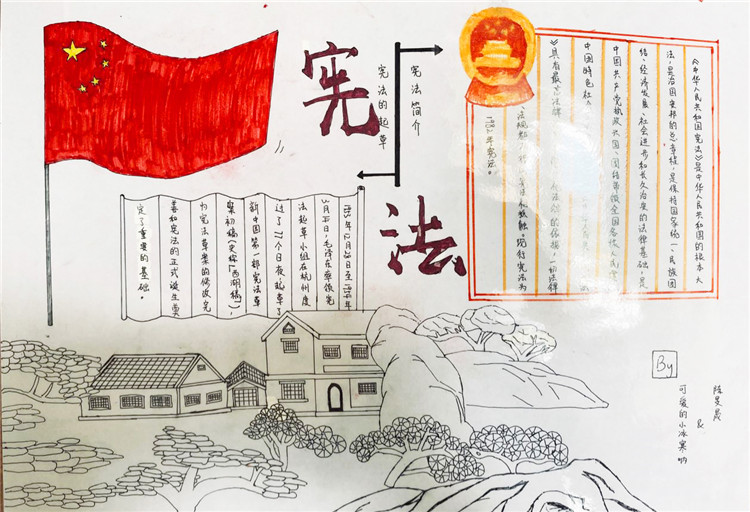 宪法
宪法简介
宪法的起草
《中华人民共和国宪法》是中华人民共和国的根本大
法，是治国安邦的总章程，是维护国家统一、民族团
结、经济发展、社会进步和长久治安的法律基础，是
中国共产党执政兴国、团结带领全国各族人民
中国特色社
具有最高法律
1982年宪法。
1953年12月28日至1954年
3月14日，毛泽东率领宪
法起草小组在杭州度
过了77个日夜，起草了
新中国第一部宪法草
案初稿(史称「西湖稿」)，
为宪法草案的修改完
善和宪法的正式诞生奠
定了重要的基础。
By
可爱的小冰寒呐